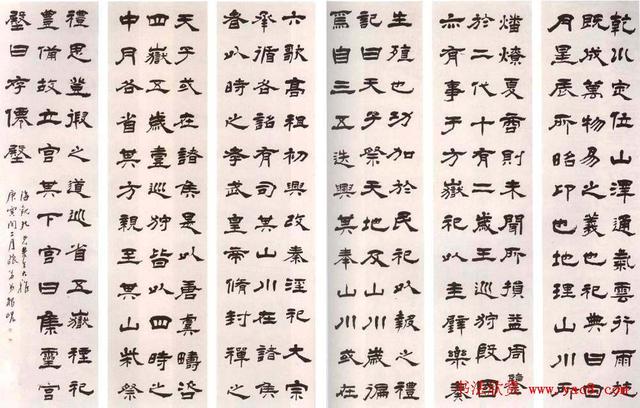 乾巛定位山澤通氣雲行雨施
既成萬物易之義也祀典曰日
月星辰所昭卬也地理山川所
燔燎夏商則未聞所損益周鑒
於二代十有二歲王巡狩殷國
亦有事于方嶽祀以圭璧樂奏
生殖也功加於民祀以報之禮
記曰天子祭天地及山川歲徧
焉自三五迭興其奉山川或在
六歌高祖初興改秦淫祀大宗
承循各詔有司其山川在諸侯
者以時之孝武皇帝脩封禪之
天子或在諸侯是以唐虞疇咨
四嶽五歲壹巡狩皆以四時之
中月各省其方親至其山柴祭
禮思登假之道巡省五嶽禋祀
豊備故立宮其下宮曰集靈宮
殿曰存僊殿
庚寅閏二月
书法欣赏 www.yac8.com